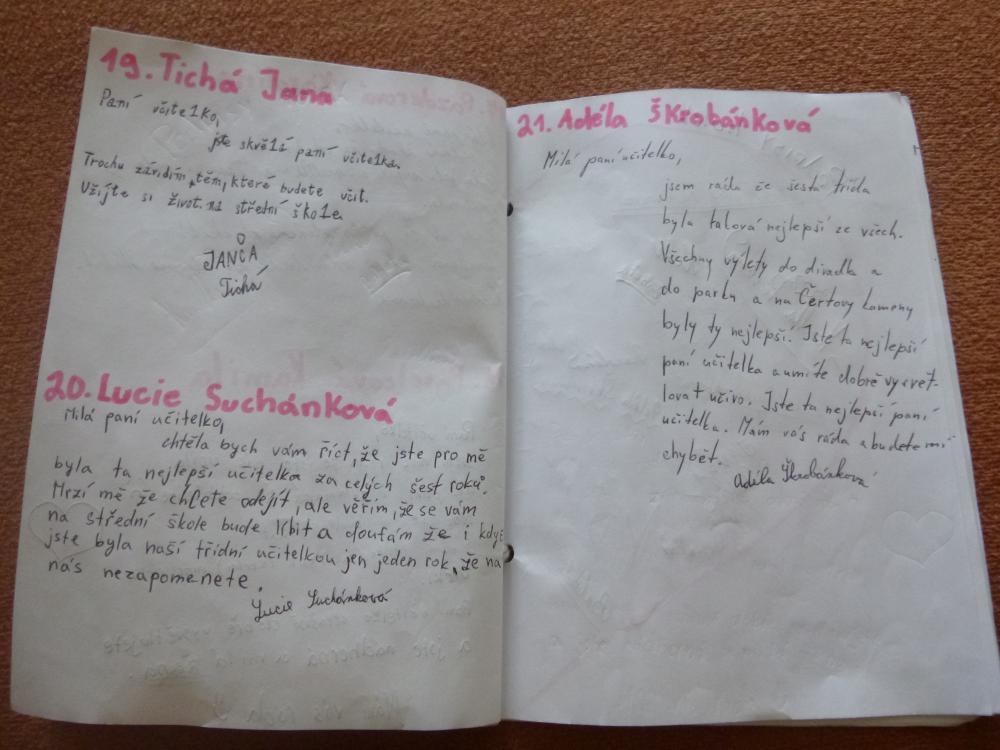 19. Tichá Jana
Paní učitelko,
jste skvělá paní učitelka.
Trochu závidím, těm, které budete učit.
Užijte si život na střední škole.
JANČA
Tichá
20. Lucie Suchánková
Milá paní učitelko,
chtěla bych vám říct, že jste pro mě
byla ta nejlepší učitelka za celých šest roků.
Mrzí mě že chcete odejít, ale věřím, že se vám
na střední škole bude líbit a doufám že i když
jste byla naší třídní učitelkou jen jeden rok, že na
nás nezapomenete.
Lucie Suchánková
21. Adéla Škrobánková
Milá paní učitelko,
jsem ráda že šestá třída
byla taková nejlepší ze všech.
Všechny výlety do divadla a
do parku a na Čertovy kameny
byly ty nejlepší. Jste ta nejlepší
paní učitelka a umíte dobře vysvět-
lovat učivo. Jste ta nejlepší paní
učitelka. Mám vás ráda a budete mi
chybět.
Adéla Škrobánková